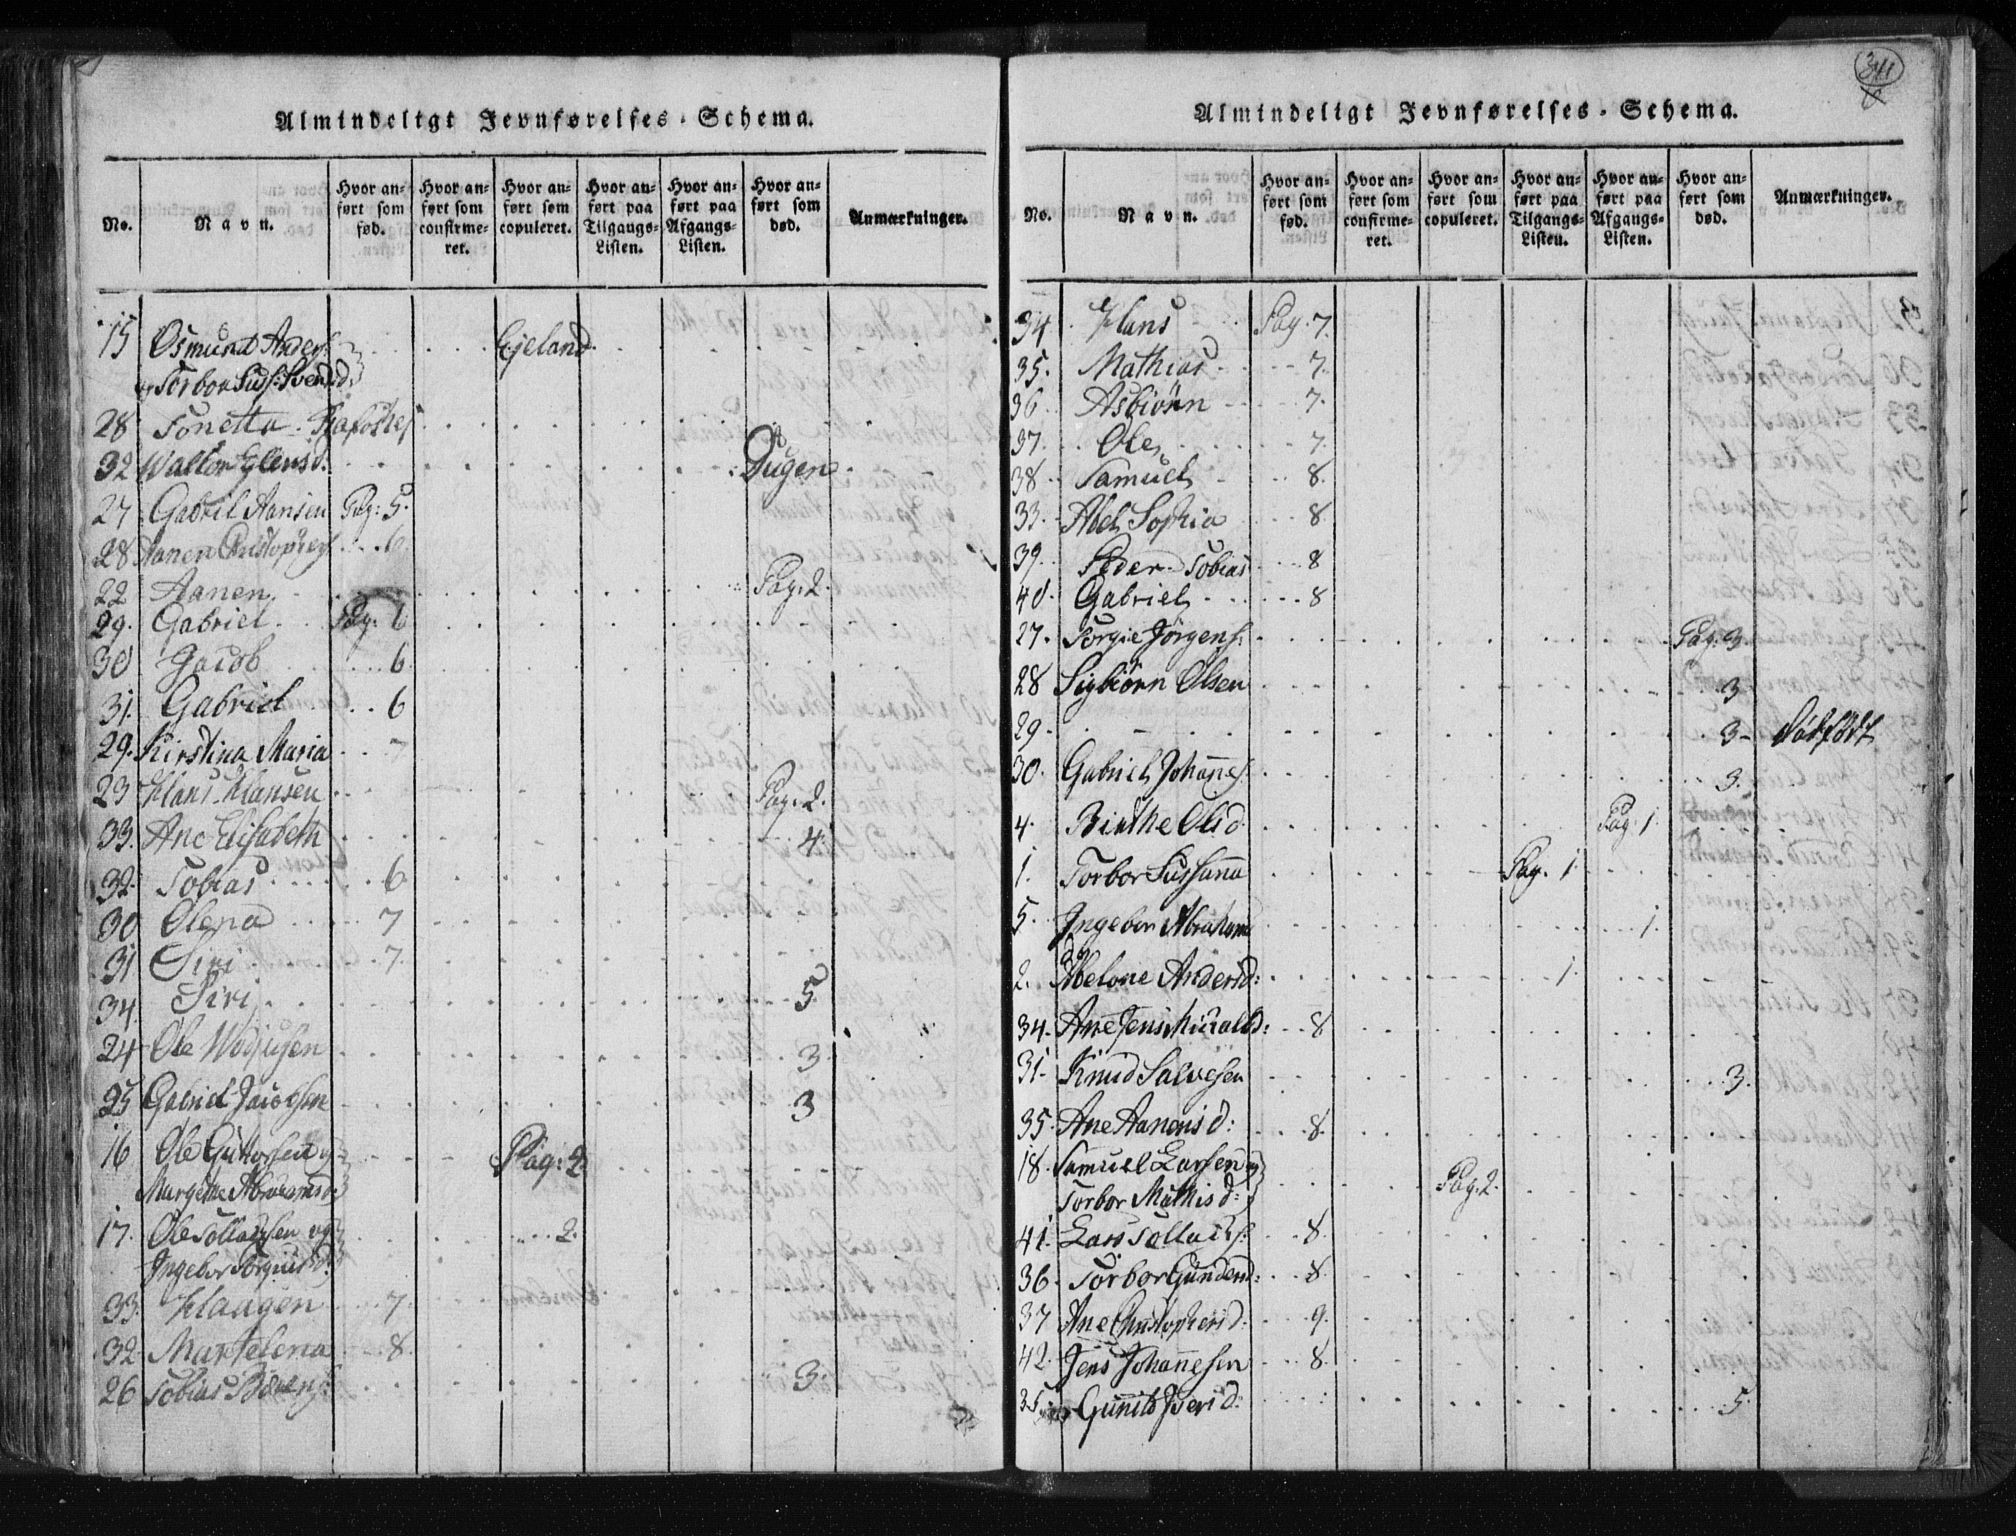 Almindeligt Jevnførelses-Schema.
No. Navn. Hvor anført som fød. Hvor anført som confirmeret. Hvor anført som copuleret. Hvor anført paa Tilgangs-Listen. Hvor anført paa Afgangs-Listen. Hvor anført som død. Anmærkninger.
15 Osmund Anders: Egeland
og Torbor Sus: Svendsd:
28 Tonetta
32 Engensd: Dugen
27 Gabriel Hansen Pag: 5.
28 Aanen Christophers: 6
22 Aanen Pag: 2.
29. Gabriel Pag: 6
30 Jacob 6
31. Gabriel 6
29. Kirstina Maria 7
23 Hans Hansen Pag: 2.
33. Ane Elisabeth 4.
32. Tobias 6
30 Olena 7
31 Siri 7.
34. Siri 5
24 Ole 3
25 Gabriel Jacobsen 3
16 Ole Guttorsen og Pag: 2.
Margethe Abrahamsd:
17. Ole Tollachsen og 2.
Ingebor Torgiusd:
33. Haagen 7
32 Martelena 8
26 Tobias 3.
341
Almindeligt Jevnførelses-Schema.
No. Navn. Hvor anført som fød. Hvor anført som confirmeret. Hvor anført som copuleret. Hvor anført paa Tilgangs-Listen. Hvor anført paa Afgangs-Listen. Hvor anført som død. Anmærkninger.
34. Hans Pag. 7.
35. Mathias 7.
36 Asbiörn 7.
37. Ole 7.
38 Samuel 8.
33. Abel Sophia 8
39. Peder Tobias 8
40. Gabriel 8
27. Torgie Jörgens: Pag: 3.
28 Sigbiörn Olsen 3
29 3. Dödfödt
30. Gabriel Johannes: 3.
4. Birthe Olsd. Pag: 1.
1. Torbor Sussanna Pag. 1.
5. Ingebor Abrahamsd: 1.
2. Abelone Andersd: 1.
34. Ane 8
31. Knud Salvesen 3.
35. Ane Aanensd: 8.
18. Samuel Larsen og Pag: 2.
Torbor Mathisd:
41. Lars Tollachs: 8.
36. Torbor Gundersd: 8.
37 Ane Christophersd: 9.
42. Jens Johannesen 8.
35. Gunild Iversd: 5.